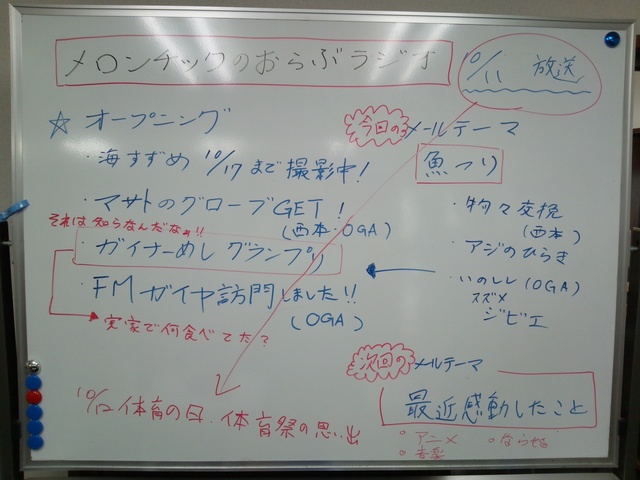 メロンチックのおらぶラジオ
10/11 放送
☆ オープニング
・海すずめ 10/17まで撮影中!
・マサトのグローブGET!
(西本・OGA)
それは知らなんだなぁ!!
・ガイナーめし グランプリ
・FMガイヤ訪問しました!!
(OGA)
実家で何食べてた?
10/12 体育の日・体育祭の思い出
今回の メールテーマ
魚つり
・物々交換
(西本)
・アジのひらき
・いのしし (OGA)
スズメ
ジビエ
次回の メールテーマ
最近感動したこと
○アニメ
○音楽